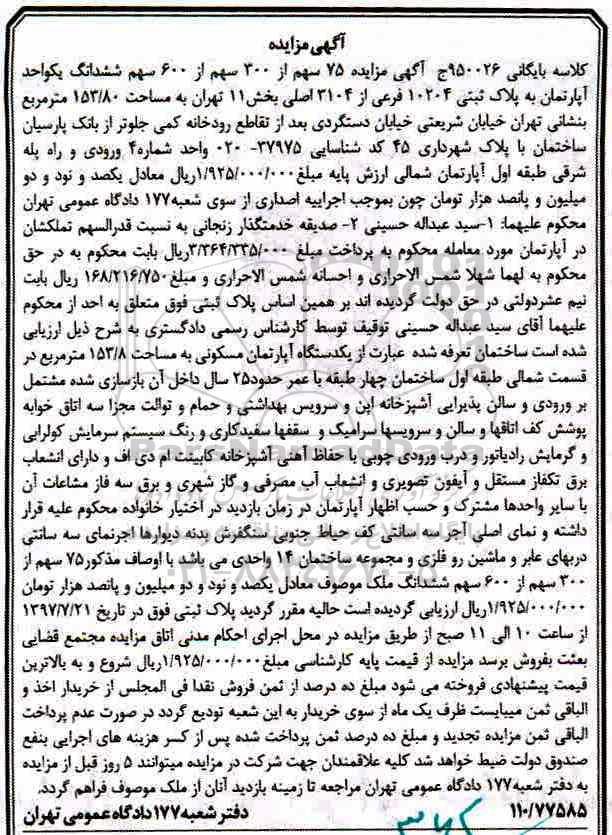 آگهی مزایده
کلاسه بایگانی ۹۵۰۰۲۶ج آگهی مزایده ۷۵ سهم از ۳۰۰ سهم از ۶۰۰ سهم ششدانگ یکواحد
آپارتمان به پلاک ثبتی ۱۰۲۰۴ فرعی از ۳۱۰۴ اصلی بخش۱۱ تهران به مساحت ۱۵۳/۸۰ مترمربع
بنشانی تهران خیابان شریعتی خیابان دستگردی بعد از تقاطع رودخانه کمی جلوتر از بانک پارسیان
ساختمان با پلاک شهرداری ۴۵ کد شناسایی ۳۷۹۷۵- ۰۲۰ واحد شماره۴ ورودی و راه پله
شرقی طبقه اول آپارتمان شمالی ارزش پایه مبلغ۱/۹۲۵/۰۰۰/۰۰۰ریال معادل یکصد و نود و دو
میلیون و پانصد هزار تومان چون بموجب اجراییه اصداری از سوی شعبه۱۷۷ دادگاه عمومی تهران
محکوم علیهما: ۱-سید عبداله حسینی ۲- صدیقه خدمتگذار زنجانی به نسبت قدرالسهم تملکشان
در آپارتمان مورد معامله محکوم به پرداخت مبلغ ۳/۳۶۴/۳۳۵/۰۰۰ریال بابت محکوم به در حق
محکوم به لهما شهلا شمس الاحراری و احسانه شمس الاحراری و مبلغ۱۶۸/۲۱۶/۷۵۰ ریال بابت
نیم عشردولتی در حق دولت گردیده اند بر همین اساس پلاک ثبتی فوق متعلق به احد از محکوم
علیهما آقای سید عبداله حسینی توقیف توسط کارشناس رسمی دادگستری به شرح ذیل ارزیابی
شده است ساختمان تعرفه شده عبارت از یکدستگاه آپارتمان مسکونی به مساحت ۱۵۳/۸ مترمربع در
قسمت شمالی طبقه اول ساختمان چهار طبقه با عمر حدود۲۵ سال داخل آن بازسازی شده مشتمل
بر ورودی و سالن پذیرایی آشپزخانه اپن و سرویس بهداشتی و حمام و توالت مجزا سه اتاق خوابه
پوشش کف اتاقها و سالن و سرویسها سرامیک و سقفها سفیدکاری و رنگ سیستم سرمایش کولرابی
و گرمایش رادیاتور و درب ورودی چوبی با حفاظ آهنی آشپزخانه کابینت ام دی اف و دارای انشعاب
برق تکفاز مستقل و آیفون تصویری و انشعاب آب مصرفی و گاز شهری و برق سه فاز مشاعات آن
با سایر واحدها مشترک و حسب اظهار آپارتمان در زمان بازدید در اختیار خانواده محکوم علیه قرار
داشته و نمای اصلی آجر سه سانتی کف حیاط جنوبی سنگفرش بدنه دیوارها اجرنمای سه سانتی
دربهای عابر و ماشین رو فلزی و مجموعه ساختمان ۱۴ واحدی می باشد با اوصاف مذکور۷۵ سهم از
۳۰۰ سهم از ۶۰۰ سهم ششدانگ ملک موصوف معادل یکصد و نود و دو میلیون و پانصد هزار تومان
۱/۹۲۵/۰۰۰/۰۰۰ریال ارزیابی گردیده است حالیه مقرر گردید پلاک ثبتی فوق در تاریخ ۱۳۹۷/۷/۲۱
از ساعت ۱۰ الی ۱۱ صبح از طریق مزایده در محل اجرای احکام مدنی اتاق مزایده مجتمع قضایی
بعثت بفروش برسد مزایده از قیمت پایه کارشناسی مبلغ۱/۹۲۵/۰۰۰/۰۰۰ریال شروع و به بالاترین
قیمت پیشنهادی فروخته می شود مبلغ ده درصد از ثمن فروش نقدا فی المجلس از خریدار اخذ و
الباقی ثمن میبایست ظرف یک ماه از سوی خریدار به این شعبه تودیع گردد در صورت عدم پرداخت
الباقی ثمن مزایده تجدید و مبلغ ده درصد ثمن پرداخت شده پس از کسر هزینه های اجرایی بنفع
صندوق دولت ضبط خواهد شد کلیه علاقمندان جهت شرکت در مزایده میتوانند ۵ روز قبل از مزایده
به دفتر شعبه۱۷۷ دادگاه عمومی تهران مراجعه تا زمینه بازدید آنان از ملک موصوف فراهم گردد.
۱۱۰/۷۷۵۸۵ دفتر شعبه ۱۷۷ دادگاه عمومی تهران